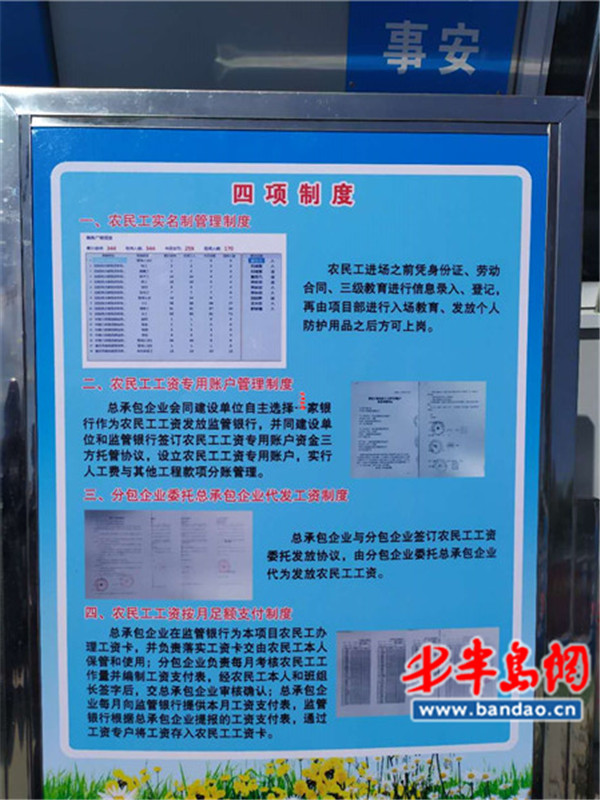 事安
四项制度
一、农民工实名制管理制度
农民工进场之前凭身份证、劳动
合同、三级教育进行信息录入、登记，
再由项目部进行入场教育、发放个人
防护用品之后方可上岗。
二、农民工工资专用账户管理制度
总承包企业会同建设单位自主选择一家银
行作为农民工工资发放监管银行，并同建设单
位和监管银行签订农民工工资专用账户资金三
方托管协议，设立农民工工资专用账户，实行
人工费与其他工程款项分账管理。
三、分包企业委托总承包企业代发工资制度
总承包企业与分包企业签订农民工工资
委托发放协议，由分包企业委托总承包企业
代为发放农民工工资。
四、农民工工资按月足额支付制度
总承包企业在监管银行为本项目农民工办
理工资卡，并负责落实工资卡交由农民工本人
保管和使用；分包企业负责每月考核农民工工
作量并编制工资支付表，经农民工本人和班组
长签字后，交总承包企业审核确认；总承包企
业每月向监管银行提供本月工资支付表，监管
银行根据总承包企业提报的工资支付表，通过
工资专户将工资存入农民工工资卡。
半岛网
www.bandao.cn